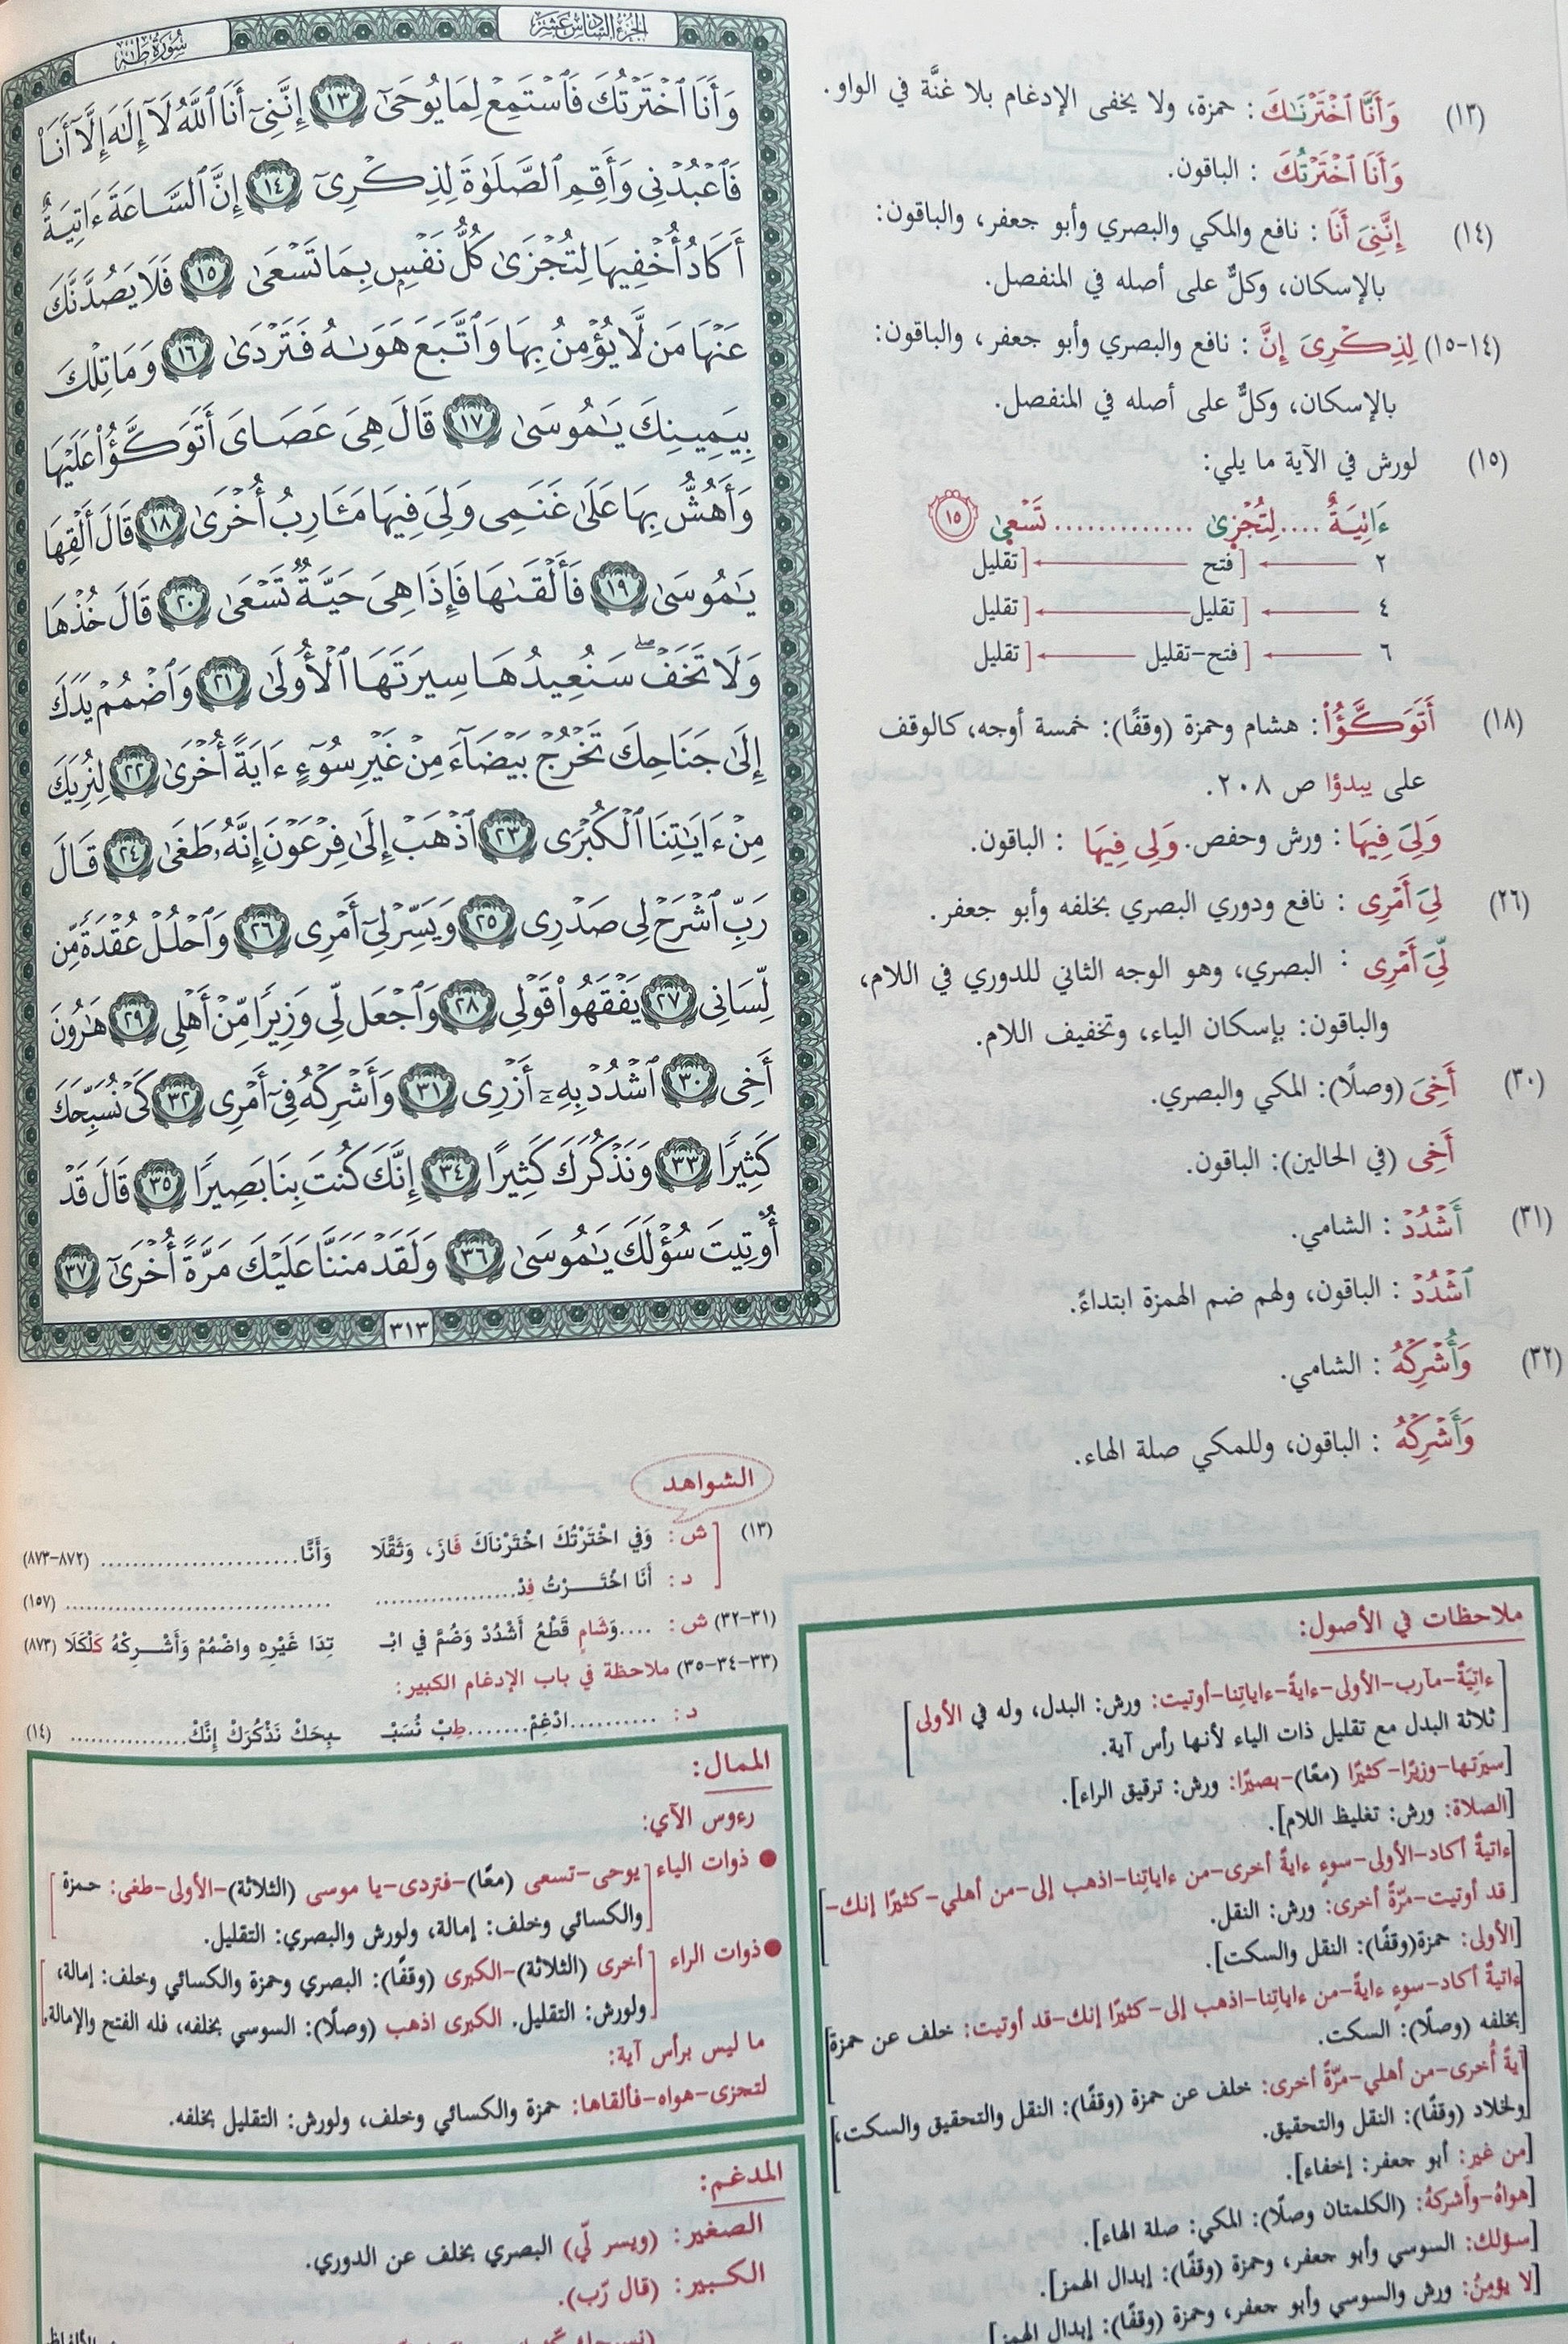 سُورَةُ طه
الجُزْءُ السَّادِسَ عَشَرَ
وَأَنَا ٱخْتَرْتُكَ فَٱسْتَمِعْ لِمَا يُوحَىٰٓ ١٣ إِنَّنِىٓ أَنَا ٱللَّهُ لَآ إِلَٰهَ إِلَّآ أَنَا۠
فَٱعْبُدْنِى وَأَقِمِ ٱلصَّلَوٰةَ لِذِكْرِىٓ ١٤ إِنَّ ٱلسَّاعَةَ ءَاتِيَةٌ
أَكَادُ أُخْفِيهَا لِتُجْزَىٰ كُلُّ نَفْسٍۭ بِمَا تَسْعَىٰ ١٥ فَلَا يَصُدَّنَّكَ
عَنْهَا مَن لَّا يُؤْمِنُ بِهَا وَٱتَّبَعَ هَوَىٰهُ فَتَرْدَىٰ ١٦ وَمَا تِلْكَ
بِيَمِينِكَ يَٰمُوسَىٰ ١٧ قَالَ هِىَ عَصَاىَ أَتَوَكَّؤُا۟ عَلَيْهَا
وَأَهُشُّ بِهَا عَلَىٰ غَنَمِى وَلِىَ فِيهَا مَـَٔارِبُ أُخْرَىٰ ١٨ قَالَ أَلْقِهَا
يَٰمُوسَىٰ ١٩ فَأَلْقَىٰهَا فَإِذَا هِىَ حَيَّةٌ تَسْعَىٰ ٢٠ قَالَ خُذْهَا
وَلَا تَخَفْ ۖ سَنُعِيدُهَا سِيرَتَهَا ٱلْأُولَىٰ ٢١ وَٱضْمُمْ يَدَكَ
إِلَىٰ جَنَاحِكَ تَخْرُجْ بَيْضَآءَ مِنْ غَيْرِ سُوٓءٍ ءَايَةً أُخْرَىٰ ٢٢ لِنُرِيَكَ
مِنْ ءَايَٰتِنَا ٱلْكُبْرَى ٢٣ ٱذْهَبْ إِلَىٰ فِرْعَوْنَ إِنَّهُۥ طَغَىٰ ٢٤ قَالَ
رَبِّ ٱشْرَحْ لِى صَدْرِى ٢٥ وَيَسِّرْ لِىٓ أَمْرِى ٢٦ وَٱحْلُلْ عُقْدَةً مِّن
لِّسَانِى ٢٧ يَفْقَهُوا۟ قَوْلِى ٢٨ وَٱجْعَل لِّى وَزِيرًا مِّنْ أَهْلِى ٢٩ هَٰرُونَ
أَخِى ٣٠ ٱشْدُدْ بِهِۦٓ أَزْرِى ٣١ وَأَشْرِكْهُ فِىٓ أَمْرِى ٣٢ كَىْ نُسَبِّحَكَ
كَثِيرًا ٣٣ وَنَذْكُرَكَ كَثِيرًا ٣٤ إِنَّكَ كُنتَ بِنَا بَصِيرًا ٣٥ قَالَ قَدْ
أُوتِيتَ سُؤْلَكَ يَٰمُوسَىٰ ٣٦ وَلَقَدْ مَنَنَّا عَلَيْكَ مَرَّةً أُخْرَىٰٓ ٣٧
٣١٣
(١٣) وَأَنَّا ٱخْتَرْنَٰكَ: حمزة، ولا يخفى الإدغام بلا غنَّة في الواو.
وَأَنَا ٱخْتَرْتُكَ : الباقون.
(١٤) إِنَّنِىَ أَنَا : نافع والمكي والبصري وأبو جعفر، والباقون:
بالإسكان، وكلٌّ على أصله في المنفصل.
(١٤-١٥) لِذِكْرِىَ إِنَّ : نافع والبصري وأبو جعفر، والباقون:
بالإسكان، وكلٌّ على أصله في المنفصل.
(١٥) لورش في الآية ما يلي:
ءَاتِيَةٌ .... لِتُجْزىٰ ............. تَسْعىٰ ١٥
٢ [فتح [تقليل
٤ [تقليل [تقليل
٦ [فتح-تقليل [تقليل
(١٨) أَتَوَكَّؤُا۟: هشام وحمزة (وقفًا): خمسة أوجه، كالوقف
على يبدؤا ص ٢٠٨.
وَلِىَ فِيهَا : ورش وحفص. وَلِى فِيهَا : الباقون.
(٢٦) لِىَ أَمْرِى : نافع ودوري البصري بخلفه وأبو جعفر.
لِّىَ أَمْرِى : البصري، وهو الوجه الثاني للدوري في اللام،
والباقون: بإسكان الياء، وتخفيف اللام.
(٣٠) أَخِىَ (وصلًا): المكي والبصري.
أَخِى (في الحالين): الباقون.
(٣١) أَشْدُدْ : الشامي.
ٱشْدُدْ : الباقون، ولهم ضم الهمزة ابتداءً.
(٣٢) وَأُشْرِكْهُ : الشامي.
وَأَشْرِكْهُ : الباقون، وللمكي صلة الهاء.
الشواهد
(١٣) ش: وَفِي اخْتَرْتُكَ اخْتَرْنَاكَ فَازَ، وَثَقَّلَا وَأَنَّا....................... (٨٧٢-٨٧٣)
د: أَنَا اخْتَـــرْتُ فِدْ................ .............................. (١٥٧)
(٣١-٣٢) ش: ....وَشَامٍ قَطْعُ أَشْدُدْ وَضُمَّ فِي ابْـ ـتِدَا غَيْرِهِ واضْمُمْ وَأَشْـــرِكْهُ كَلْكَلَا (٨٧٣)
(٣٣-٣٤-٣٥) ملاحظة في باب الإدغام الكبير:
د: ..........ادْغِمْ.......طِبْ نُسَبْـ ـبِحَكْ نَذْكُرَكْ إِنَّكْ................ (١٤)
الممال:
رءوس الآي:
● ذوات الياء [يوحى-تسعى (معًا)-فتردى-يا موسى (الثلاثة)-الأولى-طغى: حمزة
والكسائي وخلف: إمالة، ولورش والبصري: التقليل.
● ذوات الراء [أخرى (الثلاثة)-الكبرى (وقفًا): البصري وحمزة والكسائي وخلف: إمالة،
ولورش: التقليل. الكبرى اذهب (وصلًا): السوسي بخلفه، فله الفتح والإمالة.
ما ليس برأس آية:
لتجزى-هواه-فألقاها: حمزة والكسائي وخلف، ولورش: التقليل بخلفه.
المدغم:
الصغير: (ويسر لّي) البصري بخلف عن الدوري.
الكبير: (قال رّب).
ملاحظات في الأصول:
[ءاتِيَةٌ-مآرب-الأولى-ءايةً-ءاياتِنا-أوتيت: ورش: البدل، وله في الأولى
ثلاثة البدل مع تقليل ذات الياء لأنها رأس آية.]
[سيَرتها-وزيرًا-كثيرًا (معًا)-بصيرًا: ورش: ترقيق الراء].
[الصلاة: ورش: تغليظ اللام].
[ءاتيةٌ أكاد-الأولى-سوءٍ ءايةً أخرى-من ءاياتِنا-اذهب إلى-من أهلي-كثيرًا إنك-
قد أوتيت-مرّةً أخرى: ورش: النقل.]
[الأولى: حمزة(وقفًا): النقل والسكت].
[ءاتيةٌ أكاد-سوءٍ ءايةً-من ءاياتِنا-اذهب إلى-كثيرًا إنك-قد أوتيت: خلف عن حمزة
بخلفه (وصلًا): السكت.]
[آيةً أُخرى-من أهلي-مرّةً أخرى: خلف عن حمزة (وقفًا): النقل والتحقيق والسكت،
ولخلاد (وقفًا): النقل والتحقيق.]
[من غير: أبو جعفر: إخفاء].
[هواهُ-وأَشركهُ: (الكلمتان وصلًا): المكي: صلة الهاء].
[سؤلك: السوسي وأبو جعفر، وحمزة (وقفًا): إبدال الهمز].
[لا يؤمِنُ: ورش والسوسي وأبو جعفر، وحمزة (وقفًا): إبدال الهمز]